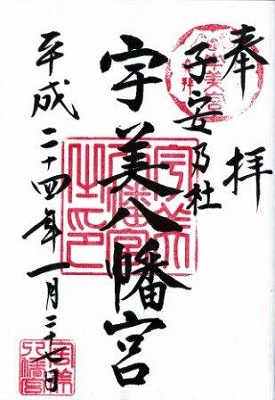 奉拝
子安乃社
宇美八幡宮
平成二十四年一月二十七日
宇美八幡宮之印
宇美八幡宮